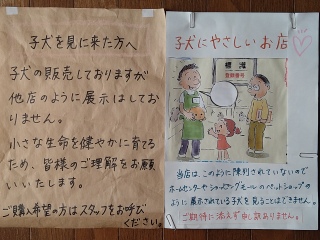 子犬を見に来た方へ
子犬の販売しておりますが
他店のように展示はしてお
りません。
小さな生命を健やかに育てる
ため、皆様のご理解をお願
いいたします。
ご購入希望の方はスタッフをお呼び
ください。
子犬にやさしいお店
標識
登録番号
当店は、このように陳列されていないので
ホームセンターやショッピングモールのペットショップの
ように展示されている子犬を見ることはできません。
ご期待に添えず申し訳ありません。